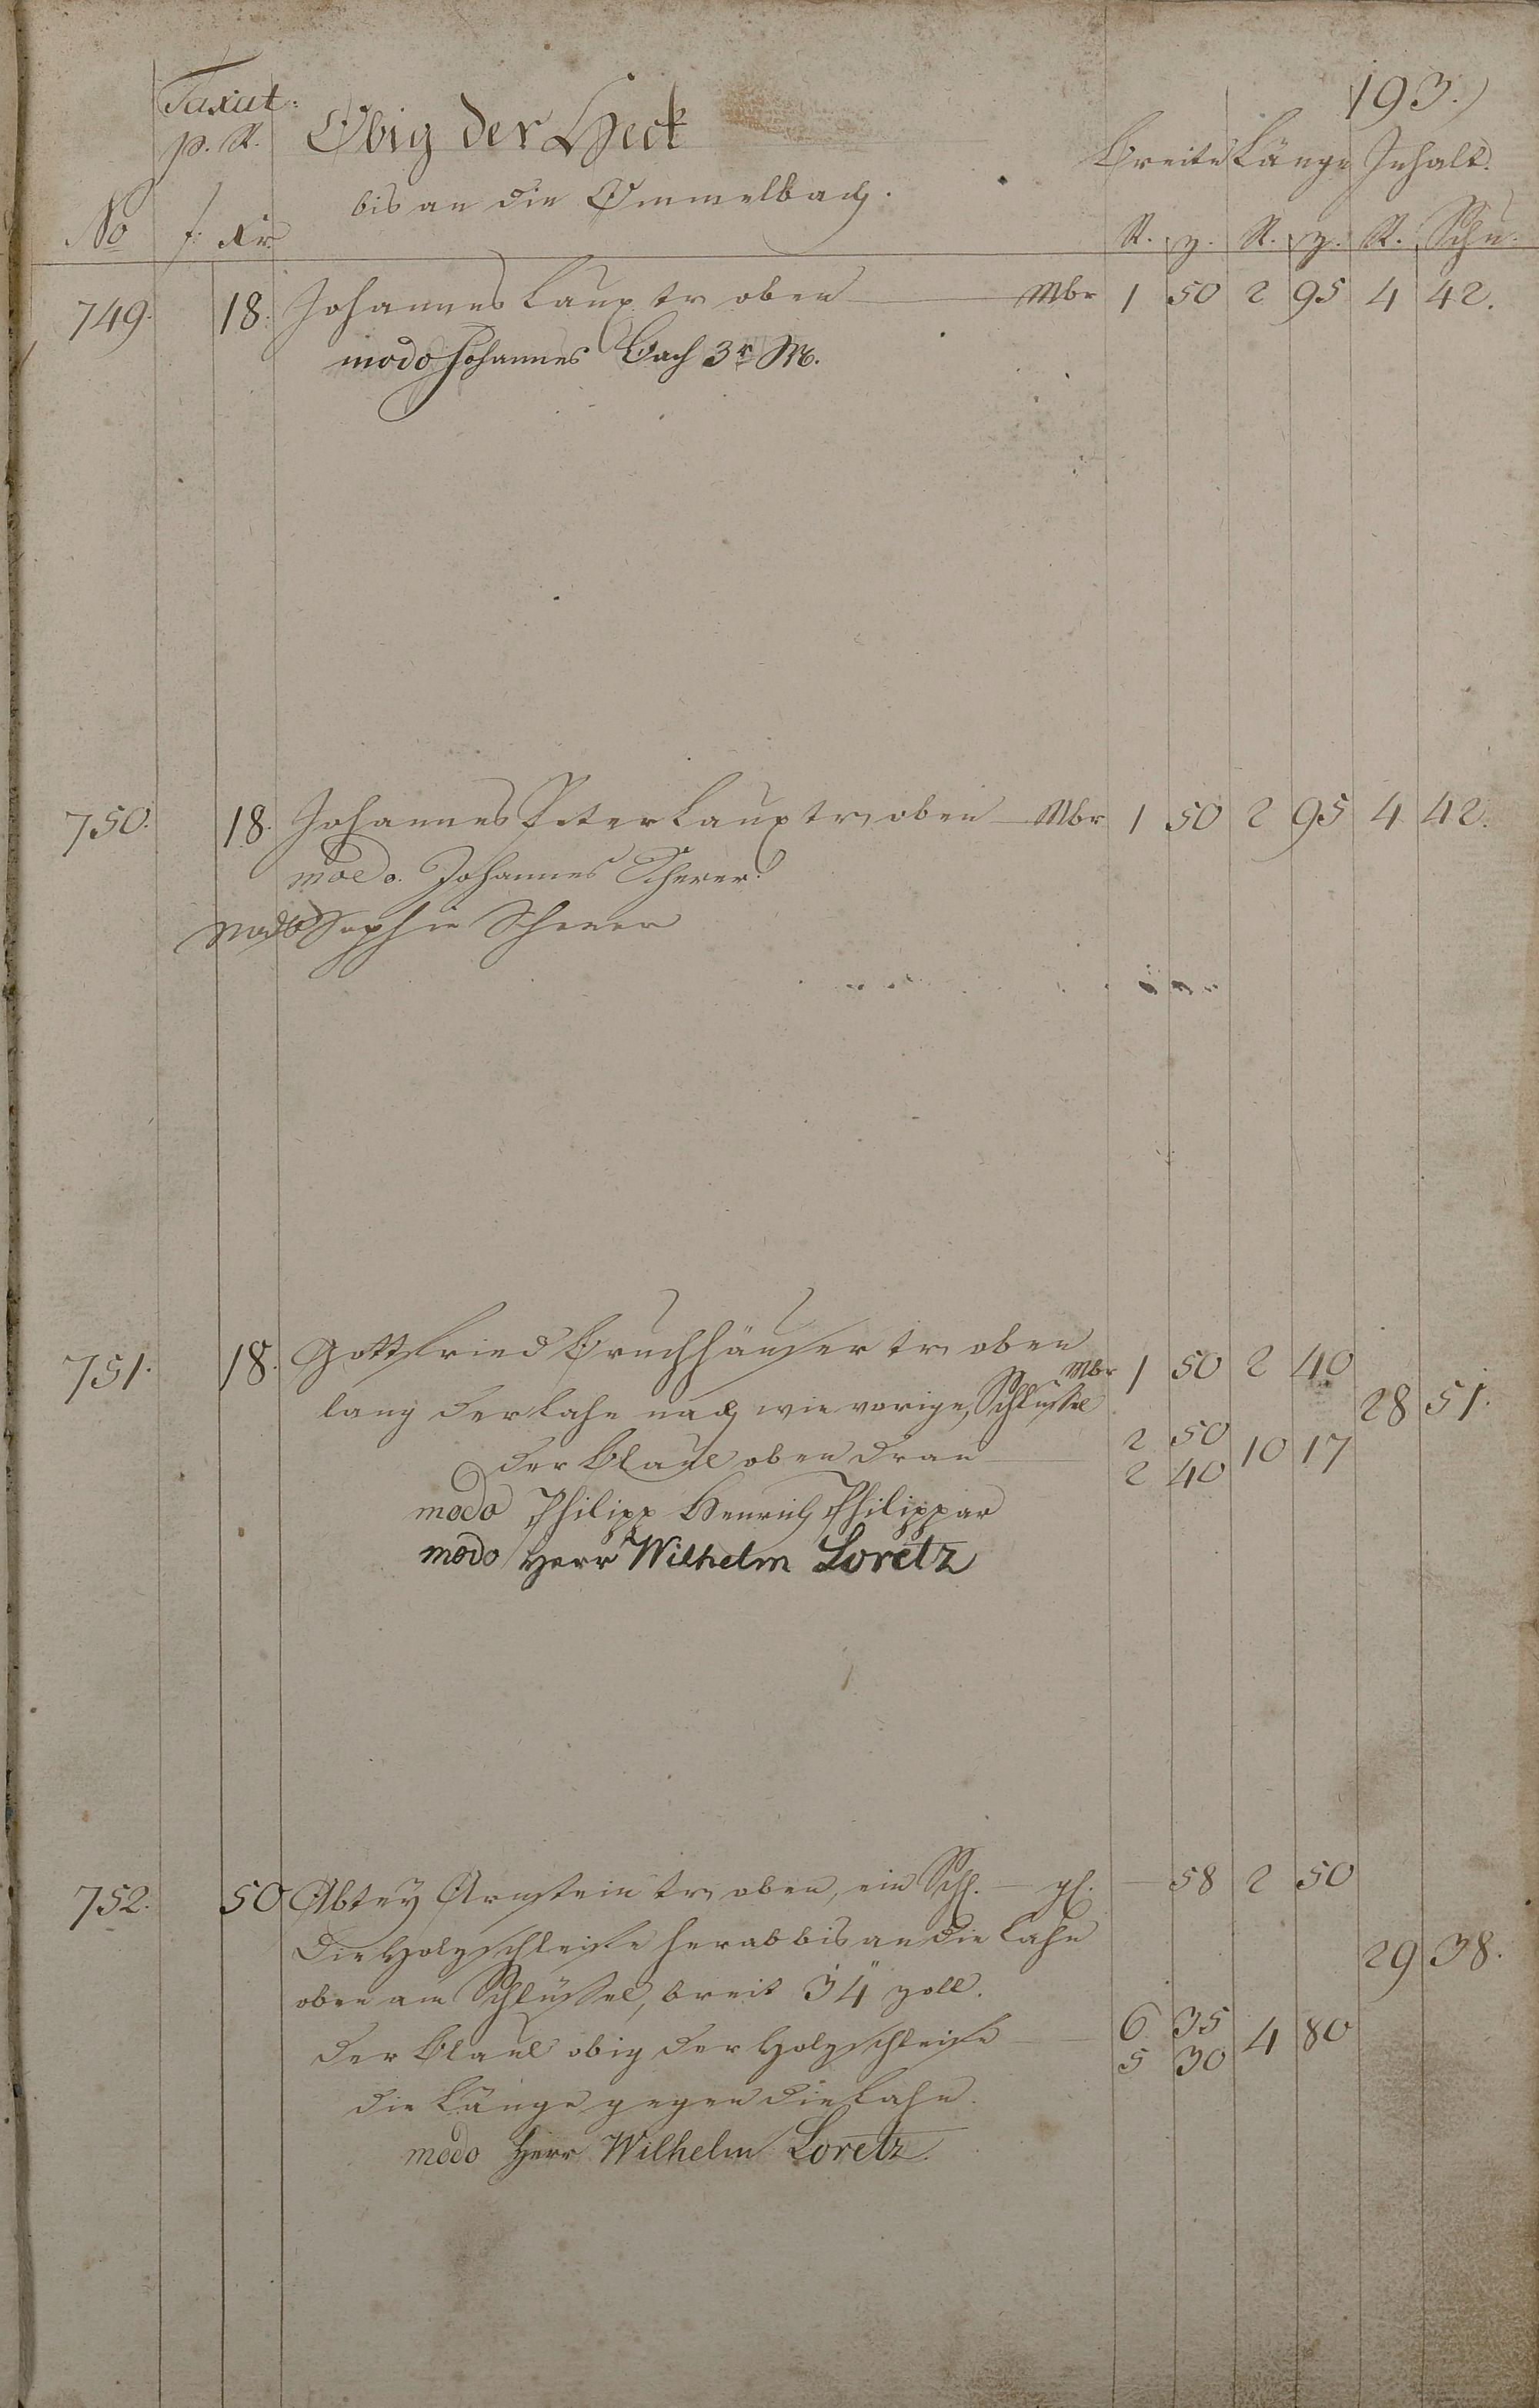 193.)
Taxat:
p. R. Obig der Heck Breite Länge Inhalt.
bis an die Ommelbach.
No f: Xr. R. z. R. z. R. Schu.
749. 18. Johannes Laux tr oben Mbr 1 50 2 95 4 42.
modo Johannes Bach 3r M.
750. 18. Johannes Peter Laux tr oben Mbr 1 50 2 95 4 42.
modo. Johannes Scherer.
modo Sophie Scherer
751. 18. Gottfried Bruchhäuser tr oben
Mbr 1 50 2 40
lang der Lahn nach wie vorige, Schlüssel 28 51.
der Blaul oben dran 2 50 10 17
2 40
modo Philipp Henrich Philippar
modo Herr Wilhelm Loretz
752. 50 Abtey Arnstein tr oben, ein Schl. — gl. — 58 2 50
die Holzschleife herab bis an die Lahn 29 38.
oben am Schlüssel, breit 3' 4" zoll.
der Blaul obig der Holzschleife 6 35 4 80
5 30
die Länge gegen die Lahn.
modo Herr Wilhelm Loretz.